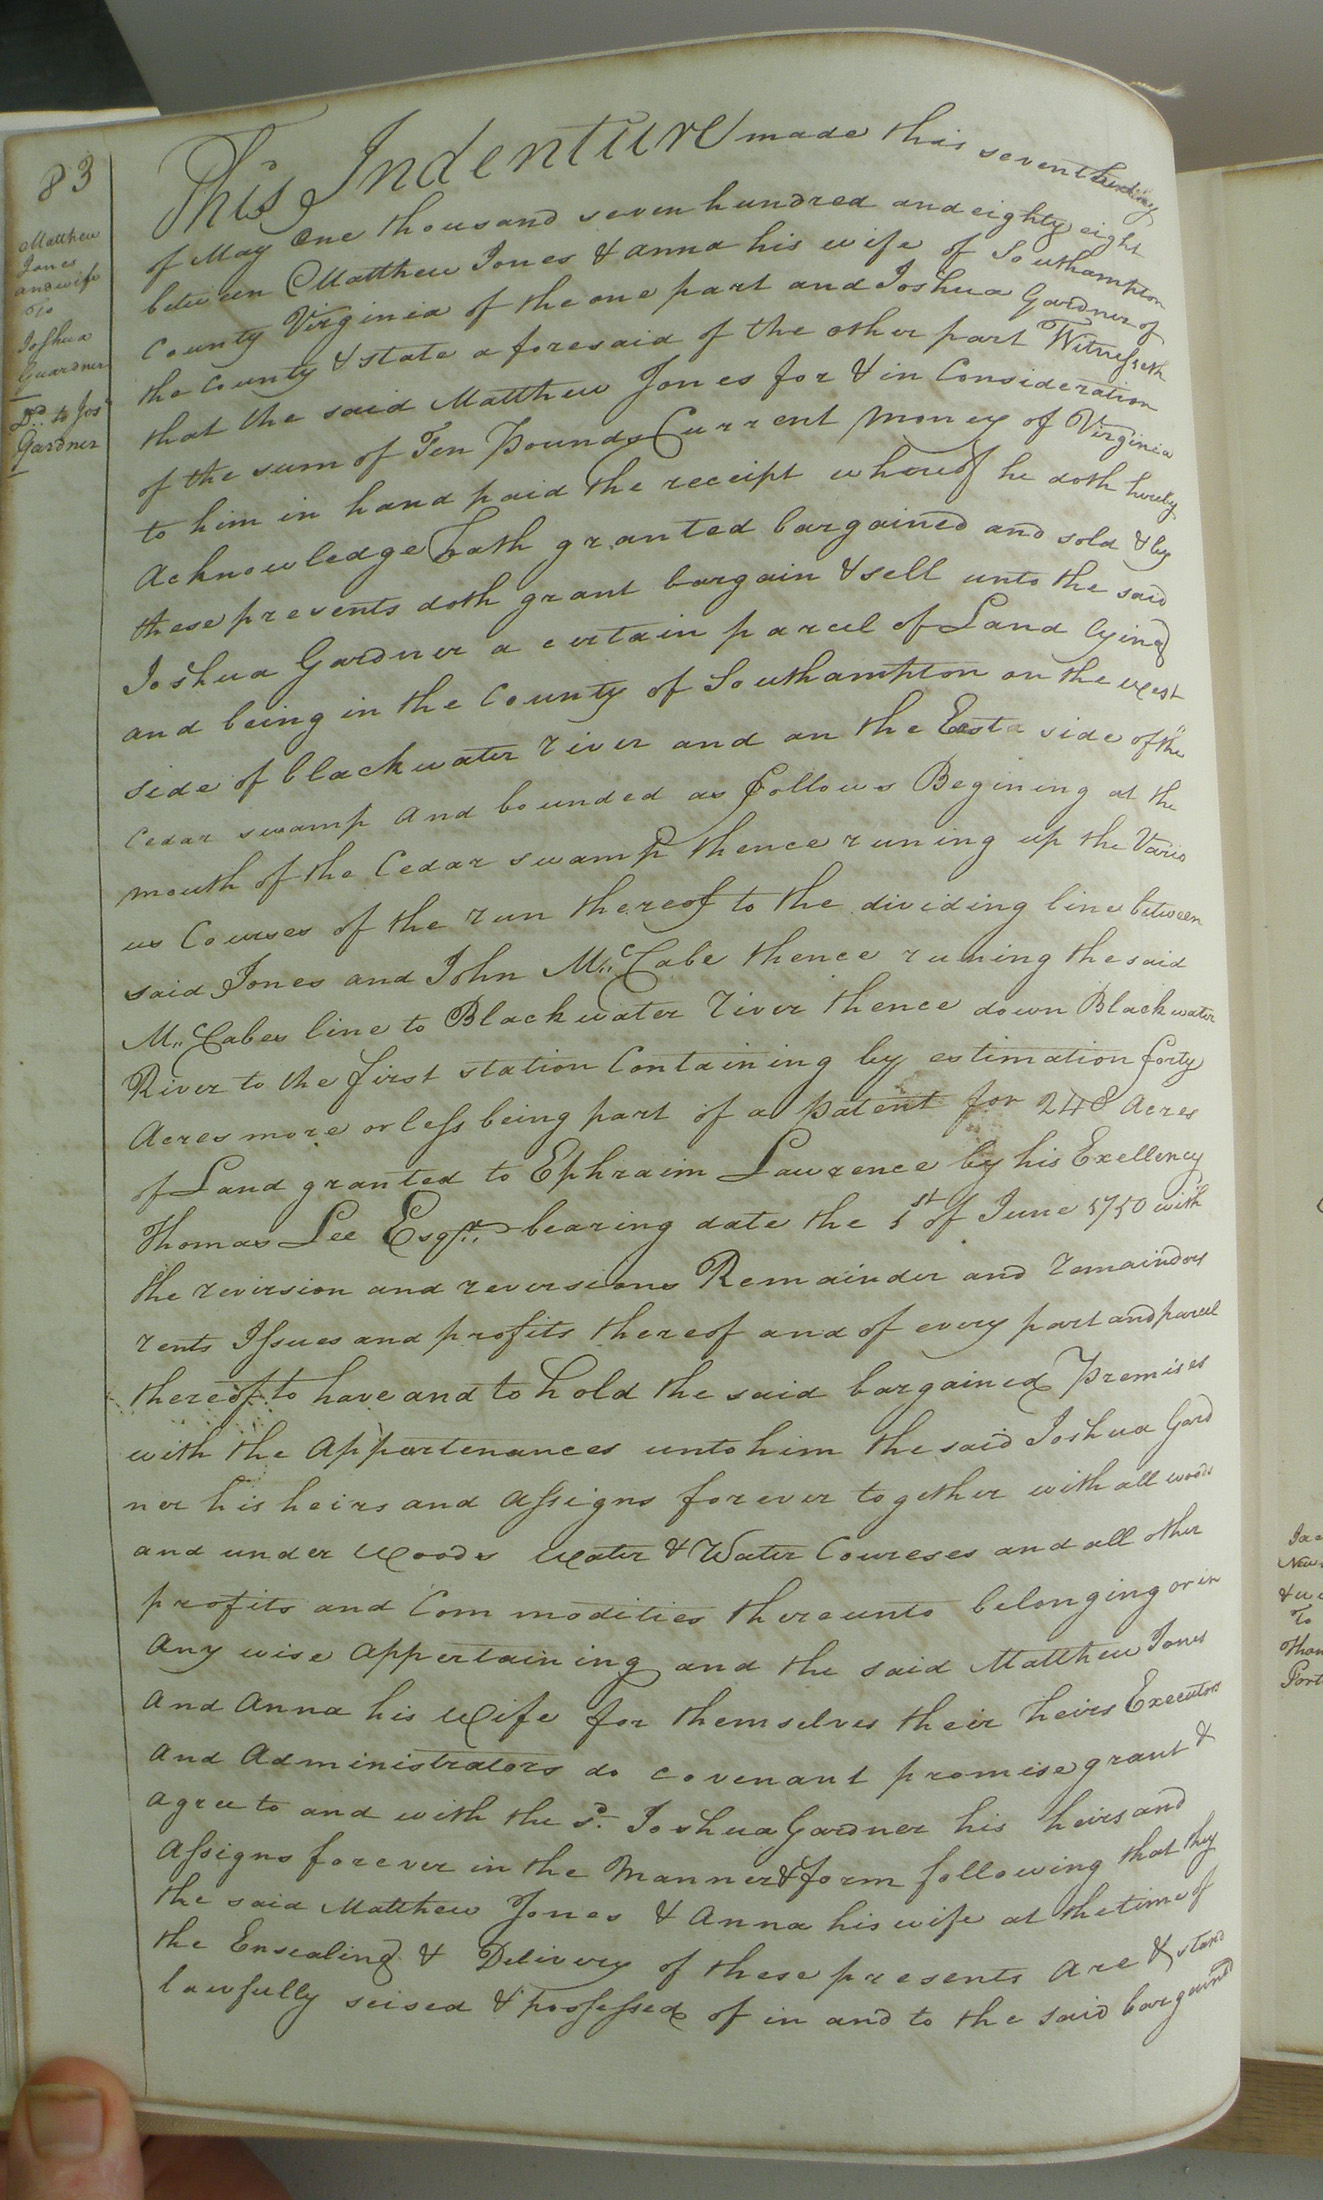 83
Matthew
Jones
and wife
To
Joshua
Guardner
Dd. to Jos
Gardner
This Indenture made this seventh day
of May One thousand seven hundred and eighty eight
between Matthew Jones & Anna his wife of Southampton
County Virginia of the one part and Joshua Gardner of
the County & state aforesaid of the other part Witnesseth
that the said Matthew Jones for & in Consideration
of the sum of Ten Pounds Current money of Virginia
to him in hand paid the receipt whereof he doth hereby
Acknowledge hath granted bargained and sold & by
these presents doth grant bargain & sell unto the said
Joshua Gardner a certain parcel of Land lying
and being in the County of Southampton on the west
side of blackwater river and on the East side of the
Cedar swamp And bounded as follows Begining at the
mouth of the Cedar swamp thence runing up the Vario
us Courses of the run thereof to the dividing line between
said Jones and John Mc Cabe thence runing the said
Mc Cabes line to Blackwater river thence down Blackwater
River to the first station Containing by estimation forty
Acres more or less being part of a patent for 248 Acres
of Land granted to Ephraim Lawrence by his Exellency
Thomas Lee Esqr. bearing date the 1st of June 1750 with
the revirsion and reversions Remainder and remainders
rents Issues and profits thereof and of every part and parcel
thereof to have and to hold the said bargained Premises
with the Appartenances unto him the said Joshua Gard
ner his heirs and Assigns forever together with all woods
and under Woods Water & Water Coureses and all other
profits and Commodities thereunto belonging or in
any wise Appertaining and the said Matthew Jones
And Anna his Wife for themselves their heirs Executors
And Administrators do covenant promise grant &
agree to and with the sd. Joshua Gardner his heirs and
Assigns forever in the Manner & form following that they
the said Matthew Jones & Anna his wife at the time of
the Ensealing & Delivery of these presents Are & stand
lawfully seised & possessed of in and to the said bargained
To